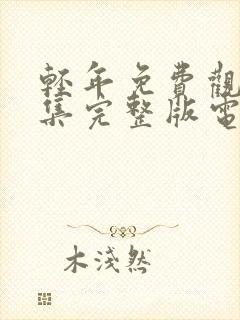 輕年免費觀
集完整版電
木淺然